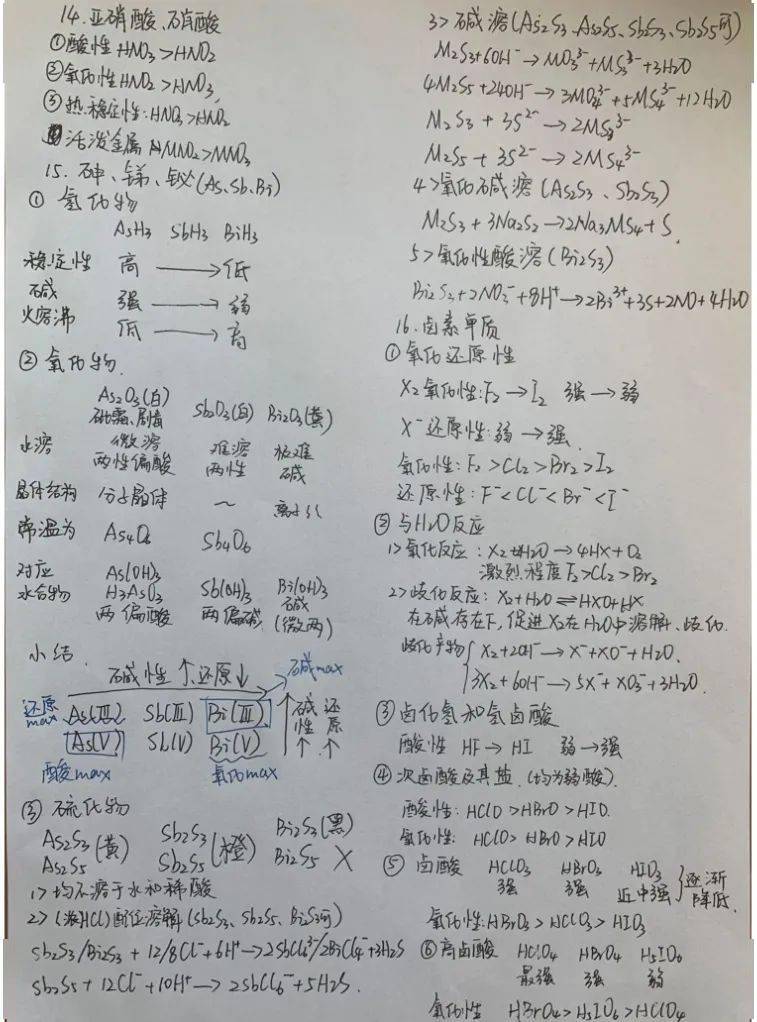 14. 亚硝酸、硝酸
①酸性 HNO₃>HNO₂
②氧化性 HNO₂>HNO₃
③热稳定性: HNO₃>HNO₂
④活泼金属 MNO₂>MNO₃
15. 砷、锑、铋(As、Sb、Bi)
① 氢化物
AsH₃ SbH₃ BiH₃
稳定性 高 → 低
碱 强 → 弱
火容沸 低 → 高
② 氧化物.
As₂O₃(白) Sb₂O₃(白) Bi₂O₃(黄)
砒霜、剧毒
水溶 微溶 难溶 极难
两性偏酸 两性 碱
晶体结构 分子晶体 ~ 离子
常温为 As₄O₆ Sb₄O₆
对应 As(OH)₃
水合物 H₃AsO₃ Sb(OH)₃ Bi(OH)₃
两偏酸 两偏碱 碱
(微两)
小结.
碱性↑.还原↓ 碱max
还原max As(Ⅲ) Sb(Ⅲ) Bi(Ⅲ) ↑碱性↑ 还原↑
As(Ⅴ) Sb(Ⅴ) Bi(Ⅴ)
酸max 氧化max
③ 硫化物
As₂S₃ (黄) Sb₂S₃ (橙) Bi₂S₃(黑)
As₂S₅ Sb₂S₅ Bi₂S₅ ×
1> 均不溶于水和稀酸
2> (浓HCl)配位溶解(Sb₂S₃、Sb₂S₅、Bi₂S₃可)
Sb₂S₃/Bi₂S₃ + 12/8Cl⁻+6H⁺→2SbCl₆³⁻/2BiCl₄⁻+3H₂S
Sb₂S₅ + 12Cl⁻+10H⁺→2SbCl₆⁻+5H₂S.
3> 碱溶(As₂S₃、As₂S₅、Sb₂S₃、Sb₂S₅可)
M₂S₃+6OH⁻→MO₃³⁻+MS₃³⁻+3H₂O
4M₂S₅+24OH⁻→3MO₄³⁻+5MS₄³⁻+12H₂O
M₂S₃ + 3S²⁻→2MS₃³⁻
M₂S₅ + 3S²⁻→2MS₄³⁻
4>氧化碱溶(As₂S₃、Sb₂S₃)
M₂S₃ + 3Na₂S₂→2Na₃MS₄+S.
5>氧化性酸溶(Bi₂S₃)
Bi₂S₃+2NO₃⁻+8H⁺→2Bi³⁺+3S+2NO+4H₂O
16. 卤素单质
① 氧化还原性
X₂氧化性:F₂→I₂ 强→弱
X⁻还原性:弱→强.
氧化性:F₂>Cl₂>Br₂>I₂
还原性:F⁻<Cl⁻<Br⁻<I⁻
② 与H₂O反应
1>氧化反应: X₂+H₂O→4HX+O₂
激烈程度F₂>Cl₂>Br₂
2>歧化反应: X₂+H₂O⇌HXO+HX
在碱存在下,促进X₂在H₂O中溶解、歧化.
歧化产物 { X₂+2OH⁻→X⁻+XO⁻+H₂O.
3X₂+6OH⁻→5X⁻+XO₃⁻+3H₂O.
③ 卤化氢和氢卤酸
酸性 HF→HI 弱→强
④ 次卤酸及其盐.(均为弱酸).
酸性: HClO>HBrO>HIO.
氧化性: HClO>HBrO>HIO
⑤ 卤酸 HClO₃ HBrO₃ HIO₃ } 逐渐降低.
强 强 近中强
氧化性:HBrO₃>HClO₃>HIO₃
⑥ 高卤酸 HClO₄ HBrO₄ H₅IO₆
最强 强 弱
氧化性 HBrO₄>H₅IO₆>HClO₄